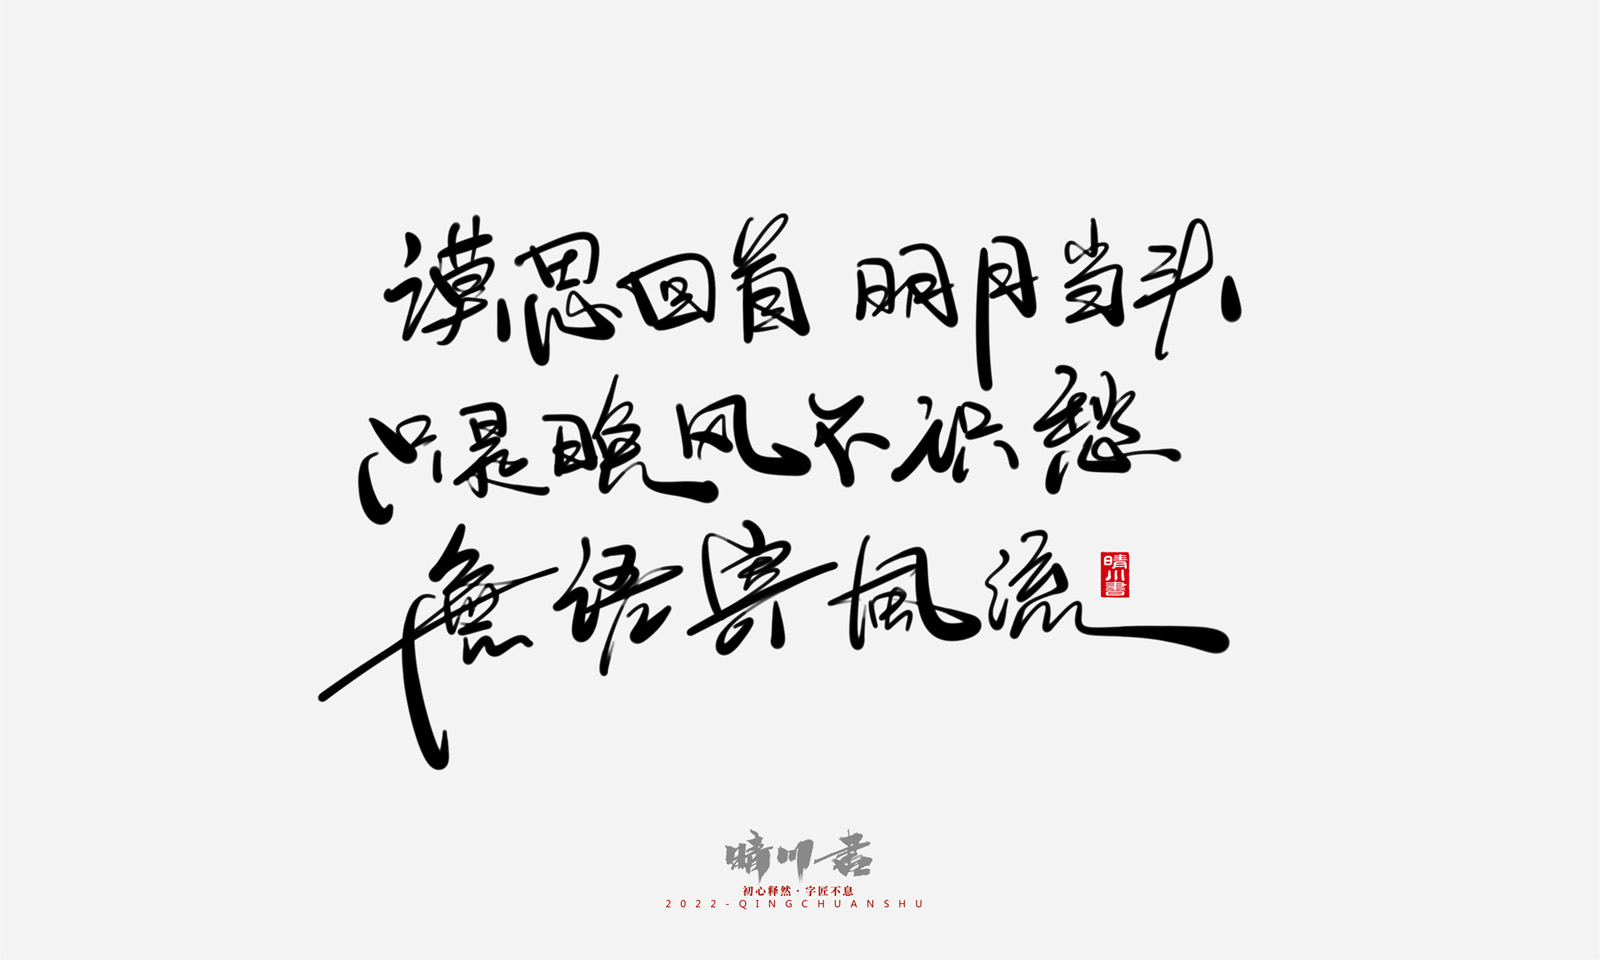 谟思回首 明月当头
只是晚风不识愁
無语寄風流
晴川書
晴川书
初心释然·字匠不息
2022-QINGCHUANSHU